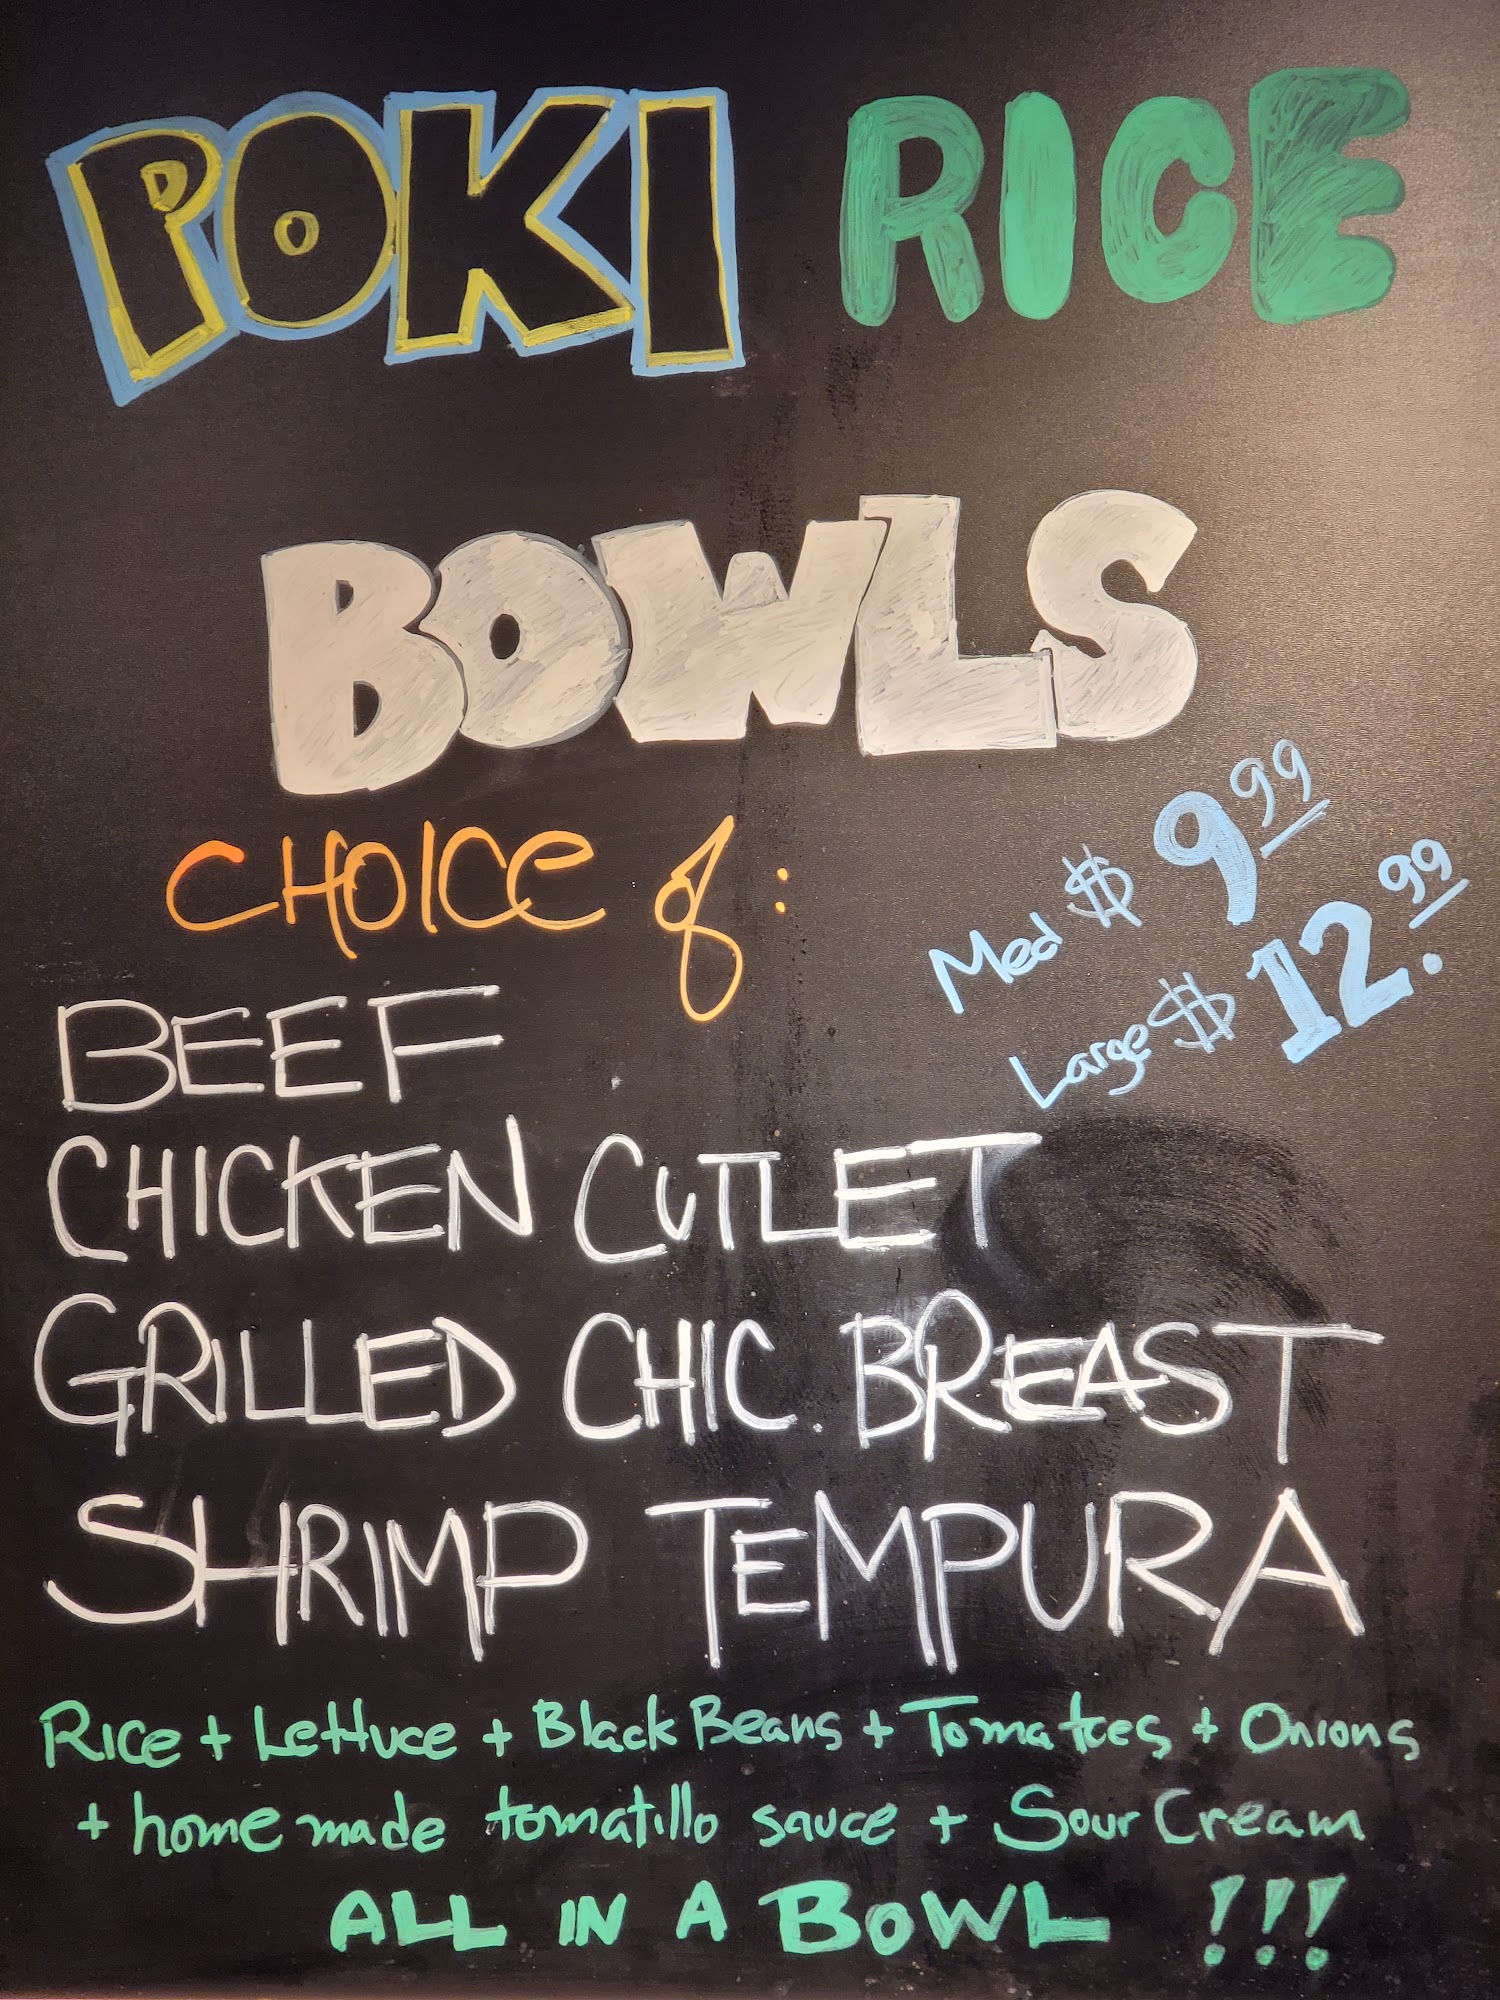 POKI RICE
BOWLS
CHOICE of:
Med $ 9.99
Large $ 12.99
BEEF
CHICKEN CUTLET
GRILLED CHIC. BREAST
SHRIMP TEMPURA
Rice + Lettuce + Black Beans + Tomatoes + Onions
+ home made tomatillo sauce + Sour Cream
ALL IN A BOWL !!!